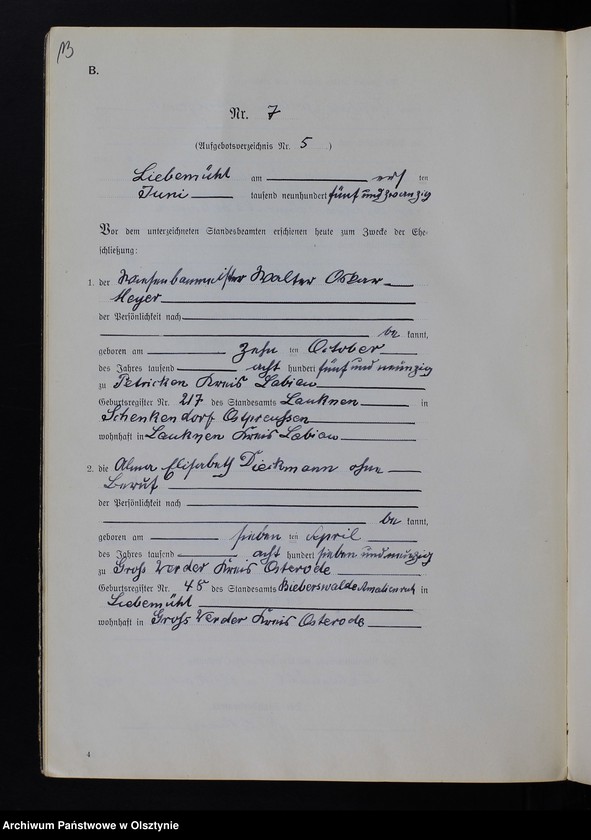 13
B.
Nr. 7
(Aufgebotsverzeichnis Nr. 5)
Liebemühl am ersten
Juni tausend neunhundert fünf und zwanzig
Vor dem unterzeichneten Standesbeamten erschienen heute zum Zwecke der Ehe-
schließung:
1. der Wiesenbaumeister Walter Oskar
Meyer
der Persönlichkeit nach
bekannt,
geboren am zehnten October
des Jahres tausend acht hundert fünf und neunzig
zu Petricken Kreis Labiau
Geburtsregister Nr. 217 des Standesamts Lauknen in
Schenkendorf Ostpreussen
wohnhaft in Lauknen Kreis Labiau
2. die Alma Elisabeth Dieckmann ohne
Beruf
der Persönlichkeit nach
bekannt,
geboren am siebenten April
des Jahres tausend acht hundert sieben und neunzig
zu Gross Werder Kreis Osterode
Geburtsregister Nr. 48 des Standesamts Bieberswalde in
Liebemühl
wohnhaft in Gross Werder Kreis Osterode
4
Archiwum Państwowe w Olsztynie